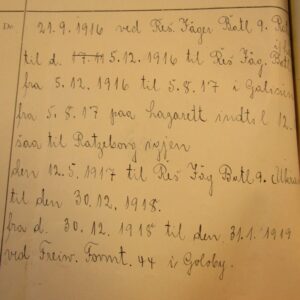 Dec. 21.9.1916 ved Res. Jäger Batl 9. Ra
til d. 17.11 5.12.1916 til Res Jäg. Batl
fra 5.12.1916 til 5.8.17 i Galizien
fra 5.8.17 paa Lazarett indtil 12.
saa til Ratzeborg igjen
den 12.5.1917 til Res Jäg Batl 9.
til den 30.12.1918.
fra d. 30.12.1918 til den 31.1.1919
ved Freiw. Formt. 44 i Golsby.